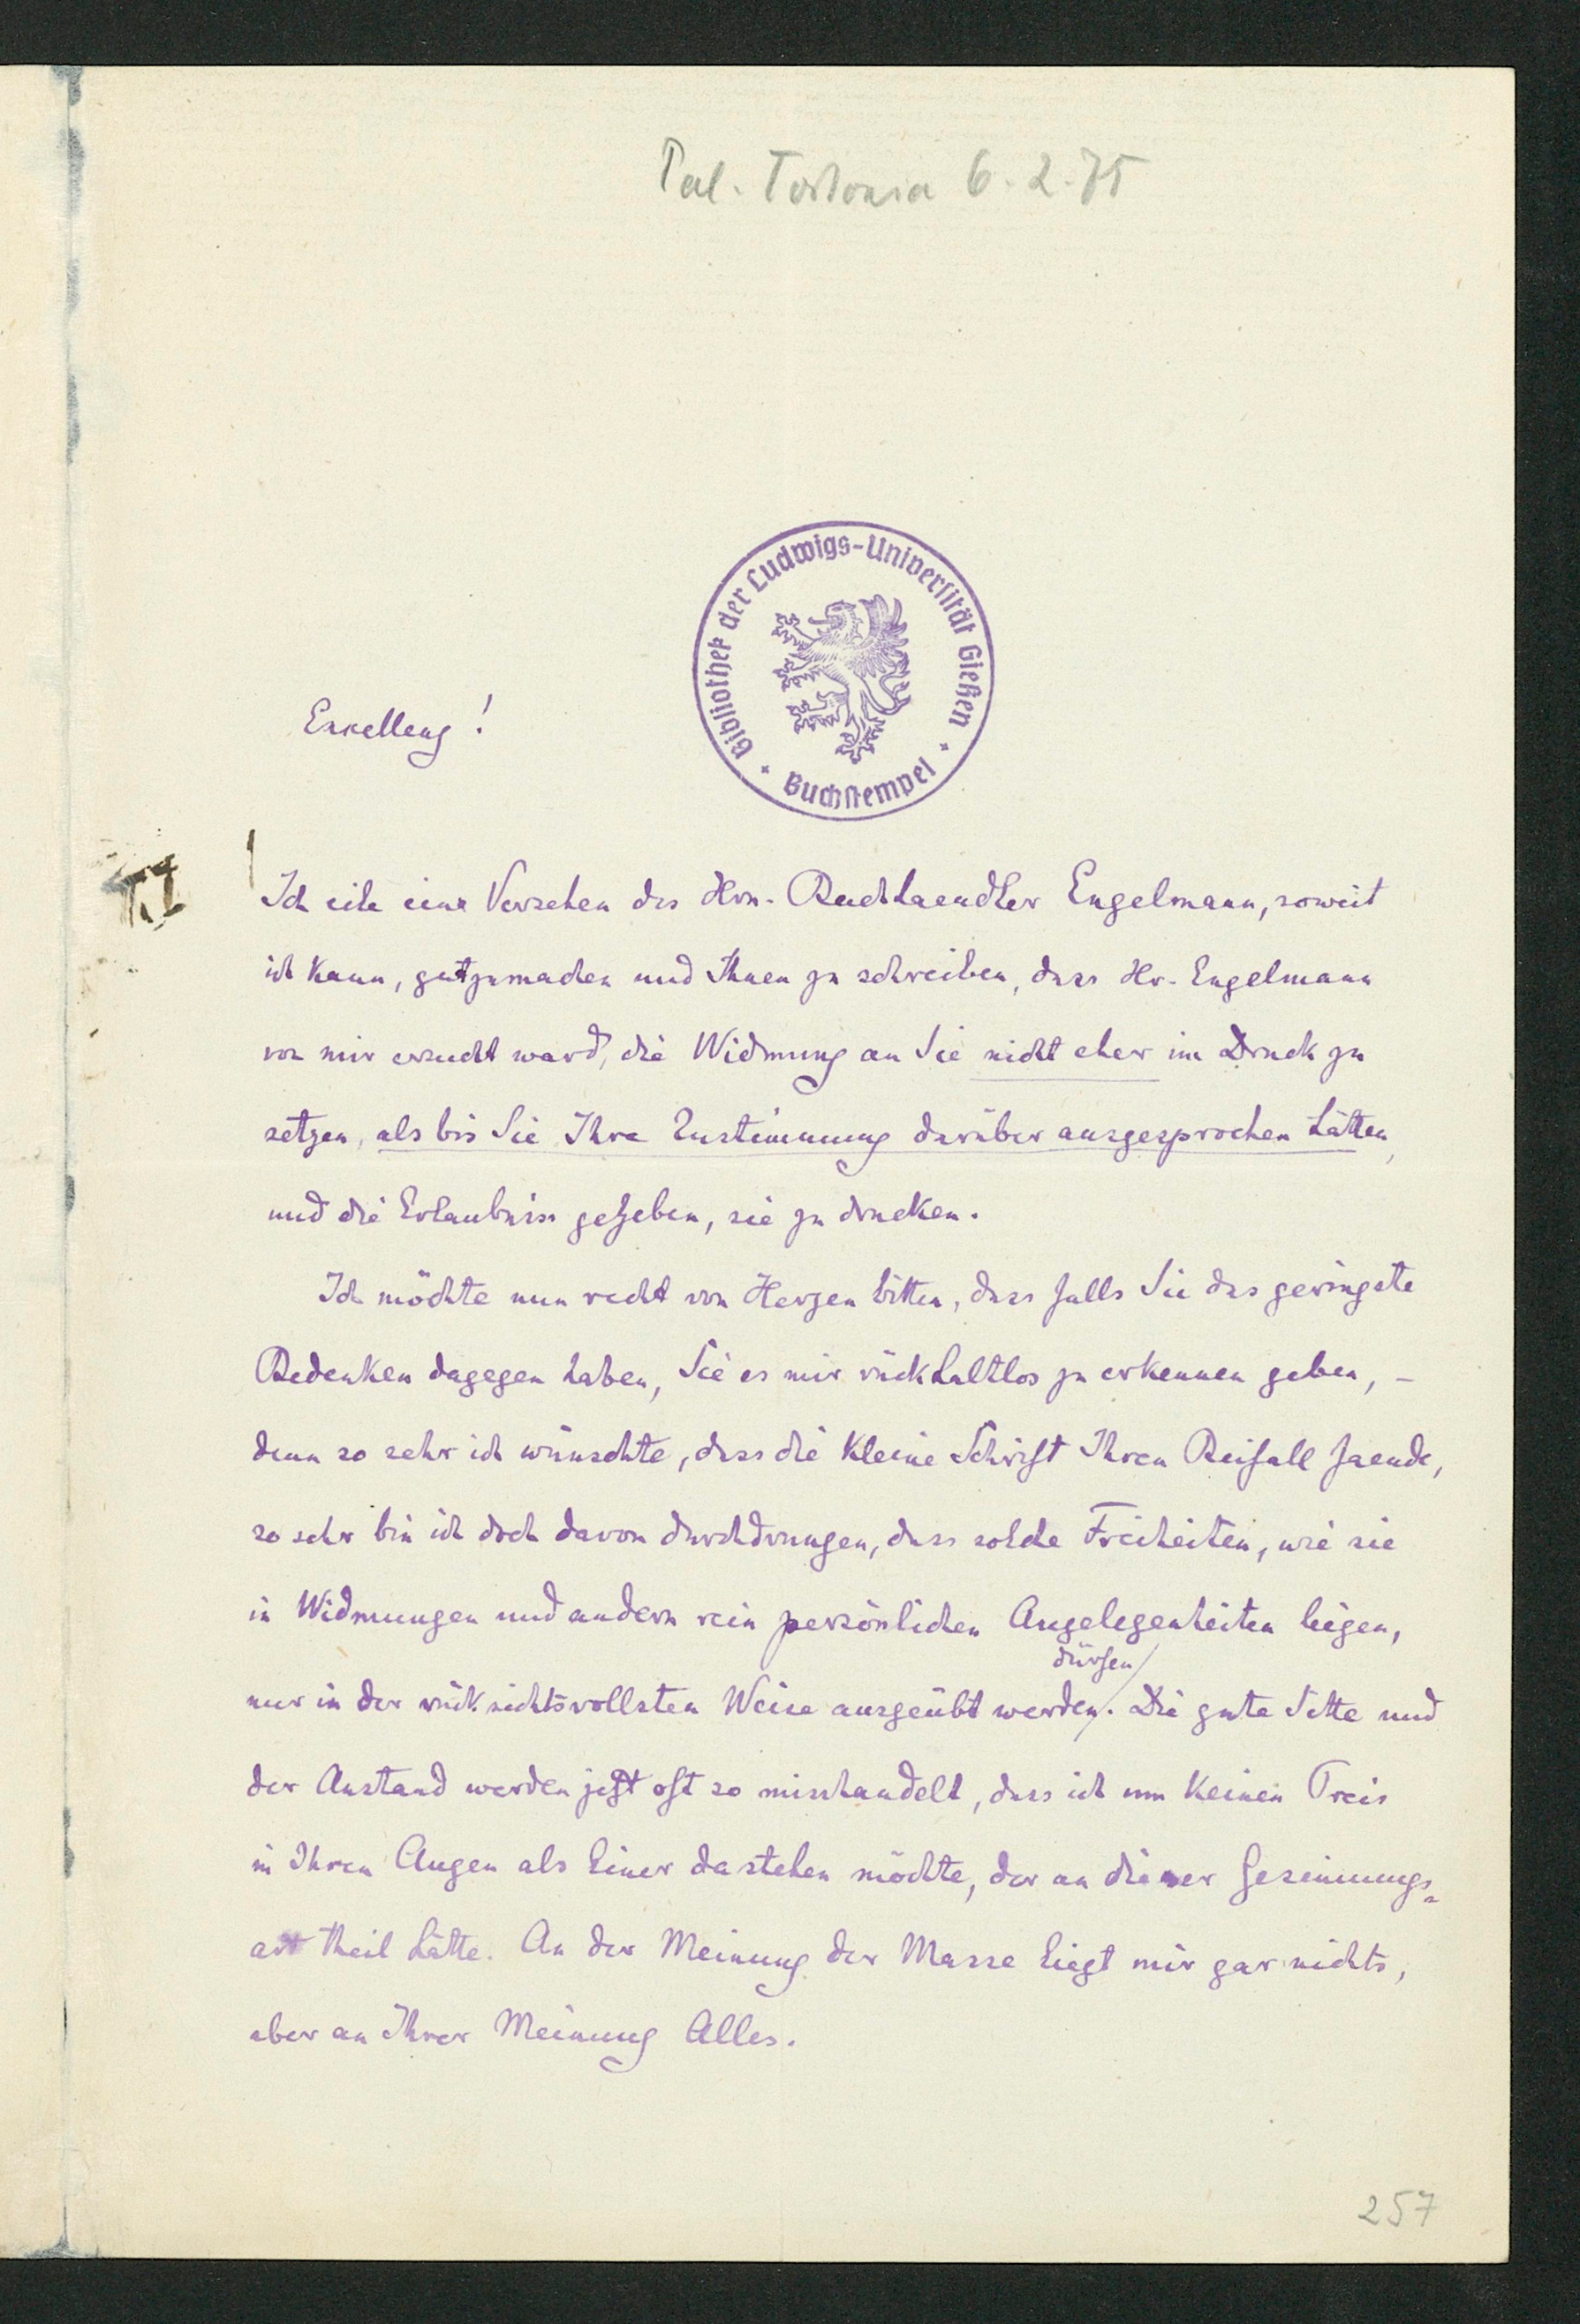 Pal. Torlonia 6.2.75
Bibliothek der Ludwigs-Universität Gießen
Buchstempel
Excellenz!
Ich eile eine Versehen des Hrn. Buchhaendler Engelmann, soweit
ich kann, gutzumachen und Ihnen zu schreiben, dass Hr. Engelmann
von mir ersucht ward, die Widmung an Sie nicht eher im Druck zu
setzen, als bis Sie Ihre Zustimmung darüber ausgesprochen hätten,
und die Erlaubniss gegeben, sie zu drucken.
Ich möchte nun recht von Herzen bitten, dass falls Sie das geringste
Bedenken dagegen haben, Sie es mir rückhaltlos zu erkennen geben, –
denn so sehr ich wünschte, dass die kleine Schrift Ihren Beifall faende,
so sehr bin ich doch davon durchdrungen, dass solche Freiheiten, wie sie
in Widmungen und andern rein persönlichen Angelegenheiten liegen,
dürfen
nur in der rücksichtsvollsten Weise ausgeübt werden. Die gute Sitte und
der Anstand werden jetzt oft so misshandelt, dass ich um keinen Preis
in Ihren Augen als Einer dastehen möchte, der an dieser Gesinnungs-
art theil hätte. An der Meinung der Masse liegt mir gar nichts,
aber an Ihrer Meinung Alles.
257